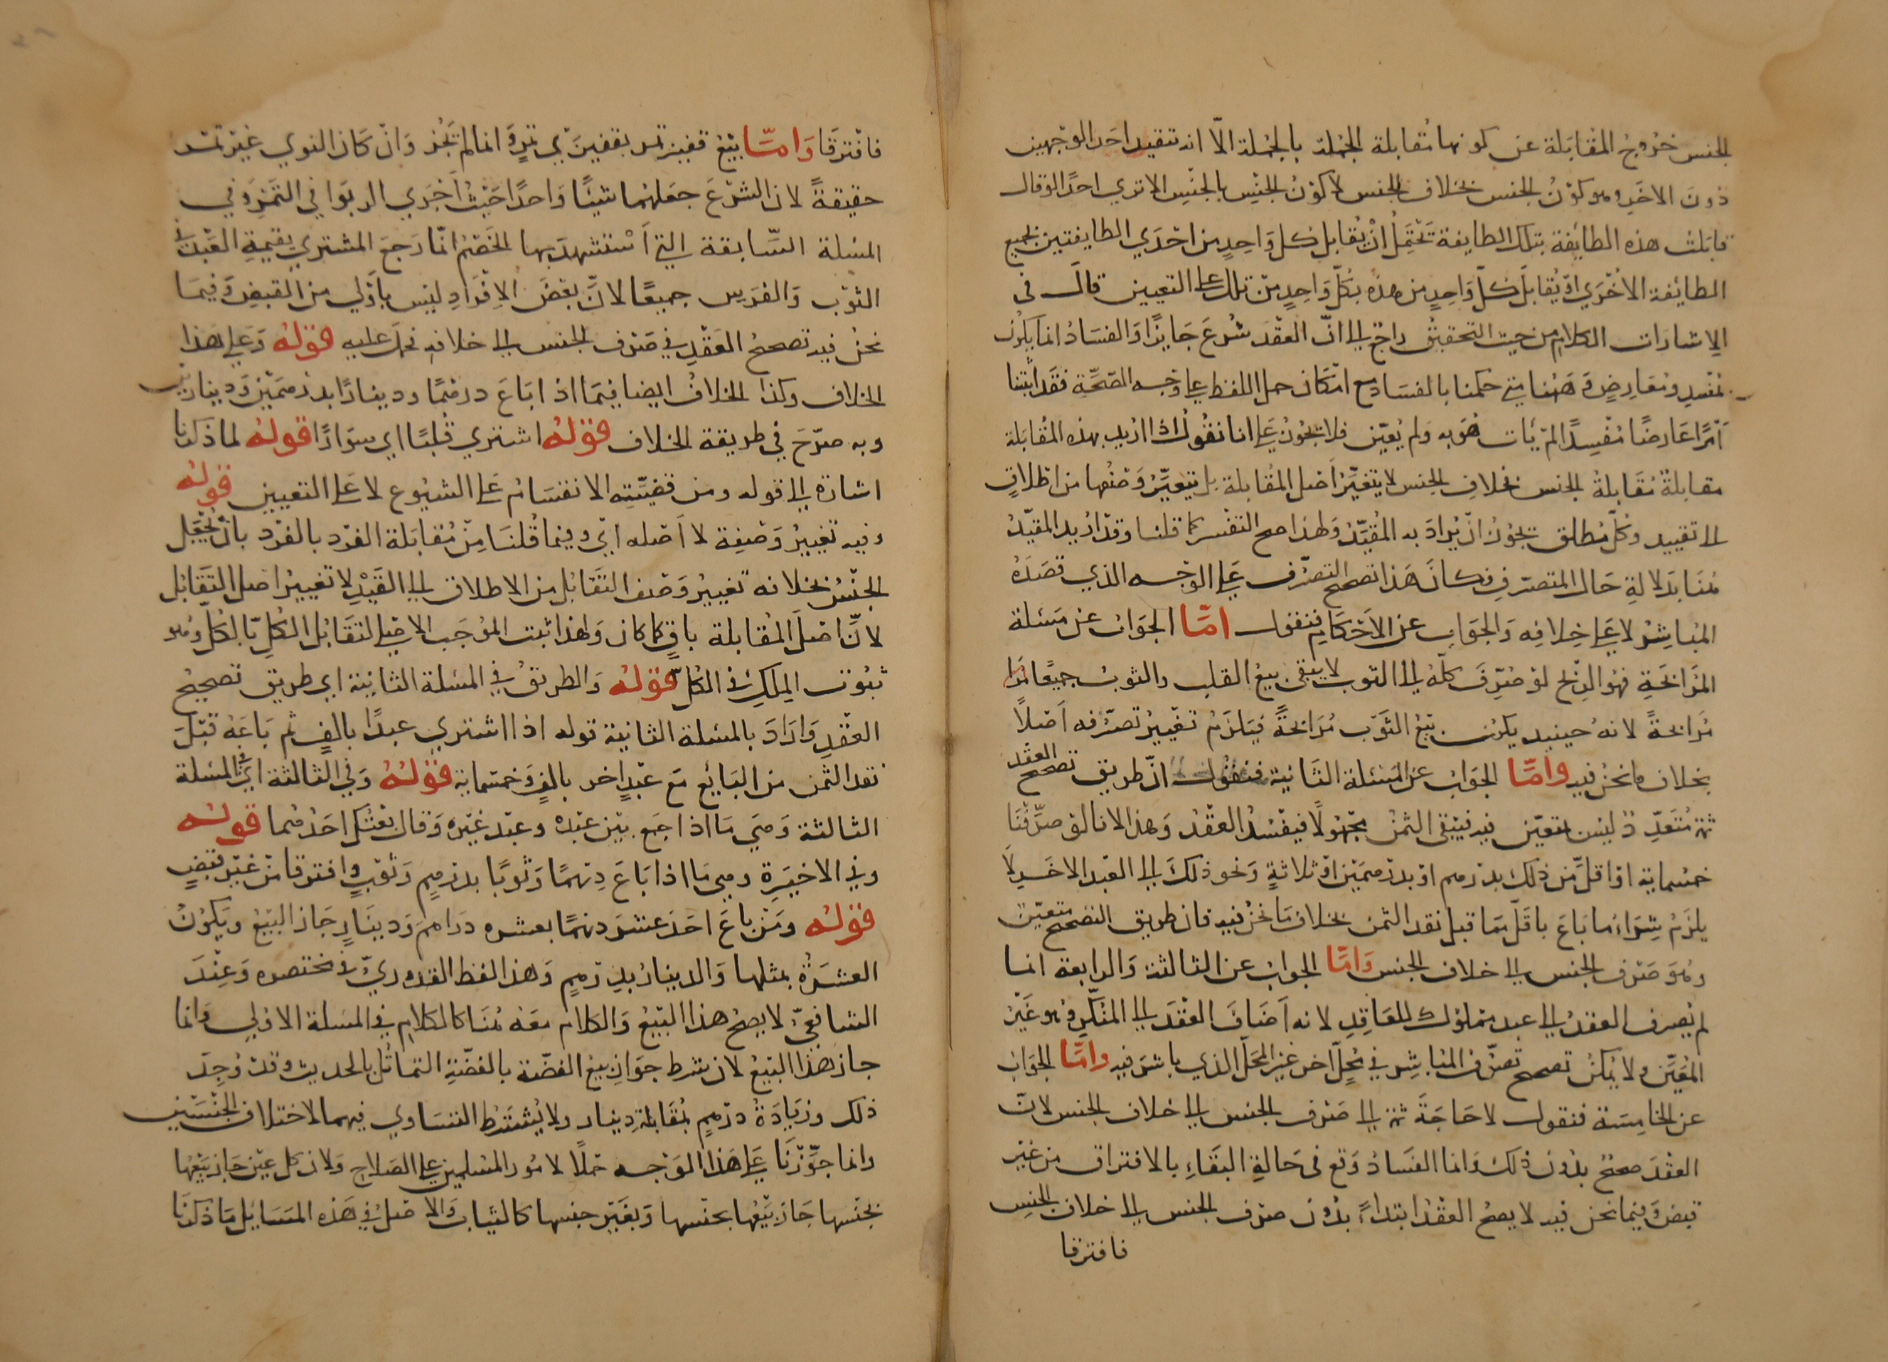 الجنس خروج المقابلة عن كونها مقابلة الجملة بالجملة الا انه تتقيد احد الوجهين
دون الاخر وهو كون الجنس بخلاف الجنس لا كون الجنس بالجنس الا تري احدا لو قال
قابلت هذه الطايفة بتلك الطايفة تحتمل ان يقابل كل واحد من احدي الطايفتين بجميع
الطايفة الاخري او يقابل كل واحد من هذه بكل واحد من تلك علي التعيين قال في
الاشارات الكلام من حيث التحقيق راجع الي ان العقد شرع جايزا والفساد انما يكون
لمفسد ومعارض وههنا متي حكمنا بالفساد مع امكان حمل اللفظ علي وجه الصحة فقد اثبتنا
امرا عارضا مفسدا لم يات هو به ولم يعين فلا يجوز علي انا نقول ان اريد بهذه المقابلة
مقابلة مقابلة الجنس بخلاف الجنس لا يتغير اصل المقابلة بل يتغير وصفها من اطلاق
الي تقييد وكل مطلق يجوز ان يراد به المقيد ولهذا صح التفسير كما قلنا وقد اريد المقيد
هنا بدلالة حال المتصرف فكان هذا تصحيح التصرف علي الوجه الذي قصده
المباشر لا علي خلافه والجواب عن الاحكام فنقول اما الجواب عن مسئلة
المرابحة فهو الربح لو صرف كله الي الثوب لا يبقي بيع القلب والثوب جميعا مرا
مرابحة لانه حينيد يكون بيع الثوب مرابحة فيلزم تغيير تصرفه اصلا
بخلاف ما نحن فيه واما الجواب عن المسئلة الثانية فنقول ان طريق تصحيح العقد
ثمة متعدد ليس بمتعين فيه فيبقي الثمن مجهولا فيفسد العقد وهذا لانا لو صرفنا
خمسماية او اقل من ذلك بدرهم او بدرهمين او ثلاثة ونحو ذلك الي العبد الاخر لا
يلزم شراء ما باع باقل مما قبل نقد الثمن بخلاف ما نحن فيه فان طريق التصحيح متعين
وهو صرف الجنس الي خلاف الجنس واما الجواب عن الثالثة والرابعة انما
لم يصرف العقد الي عبد مملوك للعاقد لانه اضاف العقد الي المنكر فهو غير
المعين ولا يمكن تصحيح تصرف المباشر في محل اخر غير المحل الذي باشر فيه واما الجواب
عن الخامسة فنقول لا حاجة ثمة الي صرف الجنس الي خلاف الجنس لان
العقد صحيح بدون ذلك وانما الفساد وقع في حالة البقاء بالافتراق من غير
قبض وفيما نحن فيه لا يصح العقد ابتداء بدون صرف الجنس الي خلاف الجنس
فافترقا
فافترقا واما بيع قفيز تمر بقفيزي تمر وانما لم تجز وان كان النوي غير تمر
حقيقة لان الشرع جعلهما شيئا واحدا حيث اجري الربوا في التمر وفي
المسلة السابقة التي استشهد بها الخصم انما رجع المشتري بقيمة العبد في
الثوب والفرس جميعا لان بعض الافراد ليس باولي من القبض وفيما
نحن فيه تصحيح العقد في صرف الجنس الي خلافه فحمل عليه قوله وعلي هذا
الخلاف وكذا الخلاف ايضا فيما اذا باع درهما ودينارا بدرهمين ودينارين
وبه صرح في طريقة الخلاف قوله اشتري قلبا اي سوارا قوله لما ذكرنا
اشارة الي قوله ومن قضيته الانقسام علي الشيوع لا علي التعيين قوله
وفيه تغيير وصفه لا اصله اي وفيما قلنا من مقابلة الفرد بالفرد بان يجعل
الجنس بخلافه تغيير وصف التقابل من الاطلاق الي القيد لا تغيير اصل التقابل
لان اصل المقابلة باق كما كان ولهذا ثبت الموجب الاصلي لتقابل الكل بالكل وهو
ثبوت الملك في الكل قوله والطريق في المسئلة الثانية اي طريق تصحيح
العقد واراد بالمسئلة الثانية قوله اذا اشتري عبدا بالف ثم باعه قبل
نقد الثمن من البايع مع عبد اخر بالف وخمسماية قوله وفي الثالثة اي في المسئلة
الثالثة وهي ما اذا جمع بين عبده وعبد غيره وقال بعتك احدهما قوله
وفي الاخيرة وهي ما اذا باع درهما وثوبا بدرهم وثوب وافترقا من غير قبض
قوله ومن باع احد عشر درهما بعشره دراهم ودينار جاز البيع ويكون
العشرة بمثلها والدينار بدرهم وهذا لفظ القدوري في مختصره وعند
الشافعي لا يصح هذا البيع والكلام معه هنا كالكلام في المسلة الاولي وانما
جاز هذا البيع لان شرط جواز بيع الفضة بالفضة التماثل بالحديث وقد وجد
ذلك وزيادة درهم بمقابلة دينار ولا يشترط التساوي فيهما لاختلاف الجنسين
وانما جوزنا علي هذا الوجه حملا لامور المسلمين علي الصلاح ولان كل عين جاز بيعها
بجنسها جاز بيعها بجنسها وبغير جنسها كالثياب والاصل في هذه المسايل ما ذكرنا